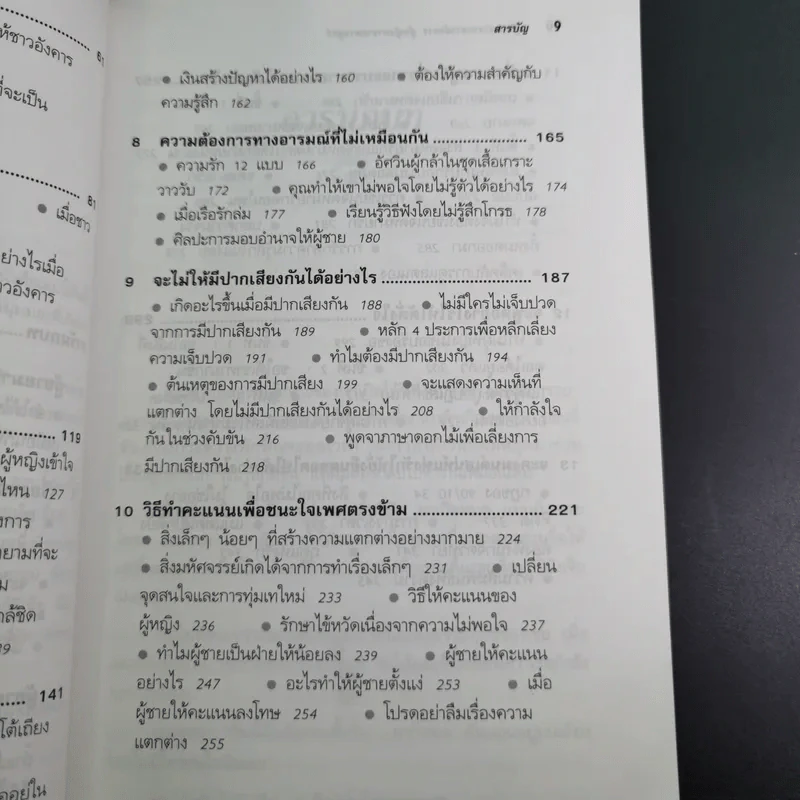 ห้ชาวอังคาร
61
ที่จะเป็น
81
● เมื่อชาว
อย่างไรเมื่อ
าวอังคาร
119
ผู้หญิงเข้าใจ
ไหน 127
งการ
ายามที่จะ
ม
กล้ชิด
141
โต้เถียง
สารบัญ 9
● เงินสร้างปัญหาได้อย่างไร 160 ● ต้องให้ความสำคัญกับ
ความรู้สึก 162
8 ความต้องการทางอารมณ์ที่ไม่เหมือนกัน ....................... 165
● ความรัก 12 แบบ 166 ● อัศวินผู้กล้าในชุดเสื้อเกราะ
วาววับ 172 ● คุณทำให้เขาไม่พอใจโดยไม่รู้ตัวได้อย่างไร 174
● เมื่อเรือรักล่ม 177 ● เรียนรู้วิธีฟังโดยไม่รู้สึกโกรธ 178
● ศิลปะการมอบอำนาจให้ผู้ชาย 180
9 จะไม่ให้มีปากเสียงกันได้อย่างไร ................................. 187
● เกิดอะไรขึ้นเมื่อมีปากเสียงกัน 188 ● ไม่มีใครไม่เจ็บปวด
จากการมีปากเสียงกัน 189 ● หลัก 4 ประการเพื่อหลีกเลี่ยง
ความเจ็บปวด 191 ● ทำไมต้องมีปากเสียงกัน 194
● ต้นเหตุของการมีปากเสียง 199 ● จะแสดงความเห็นที่
แตกต่าง โดยไม่มีปากเสียงกันได้อย่างไร 208 ● ให้กำลังใจ
กันในช่วงคับขัน 216 ● พูดจาภาษาดอกไม้เพื่อเลี่ยงการ
มีปากเสียงกัน 218
10 วิธีทำคะแนนเพื่อชนะใจเพศตรงข้าม ........................... 221
● สิ่งเล็กๆ น้อยๆ ที่สร้างความแตกต่างอย่างมากมาย 224
● สิ่งมหัศจรรย์เกิดได้จากการทำเรื่องเล็กๆ 231 ● เปลี่ยน
จุดสนใจและการทุ่มเทใหม่ 233 ● วิธีให้คะแนนของ
ผู้หญิง 236 ● รักษาไข้หวัดเนื่องจากความไม่พอใจ 237
● ทำไมผู้ชายเป็นฝ่ายให้น้อยลง 239 ● ผู้ชายให้คะแนน
อย่างไร 247 ● อะไรทำให้ผู้ชายตั้งแง่ 253 ● เมื่อ
ผู้ชายให้คะแนนลงโทษ 254 ● โปรดอย่าลืมเรื่องความ
แตกต่าง 255